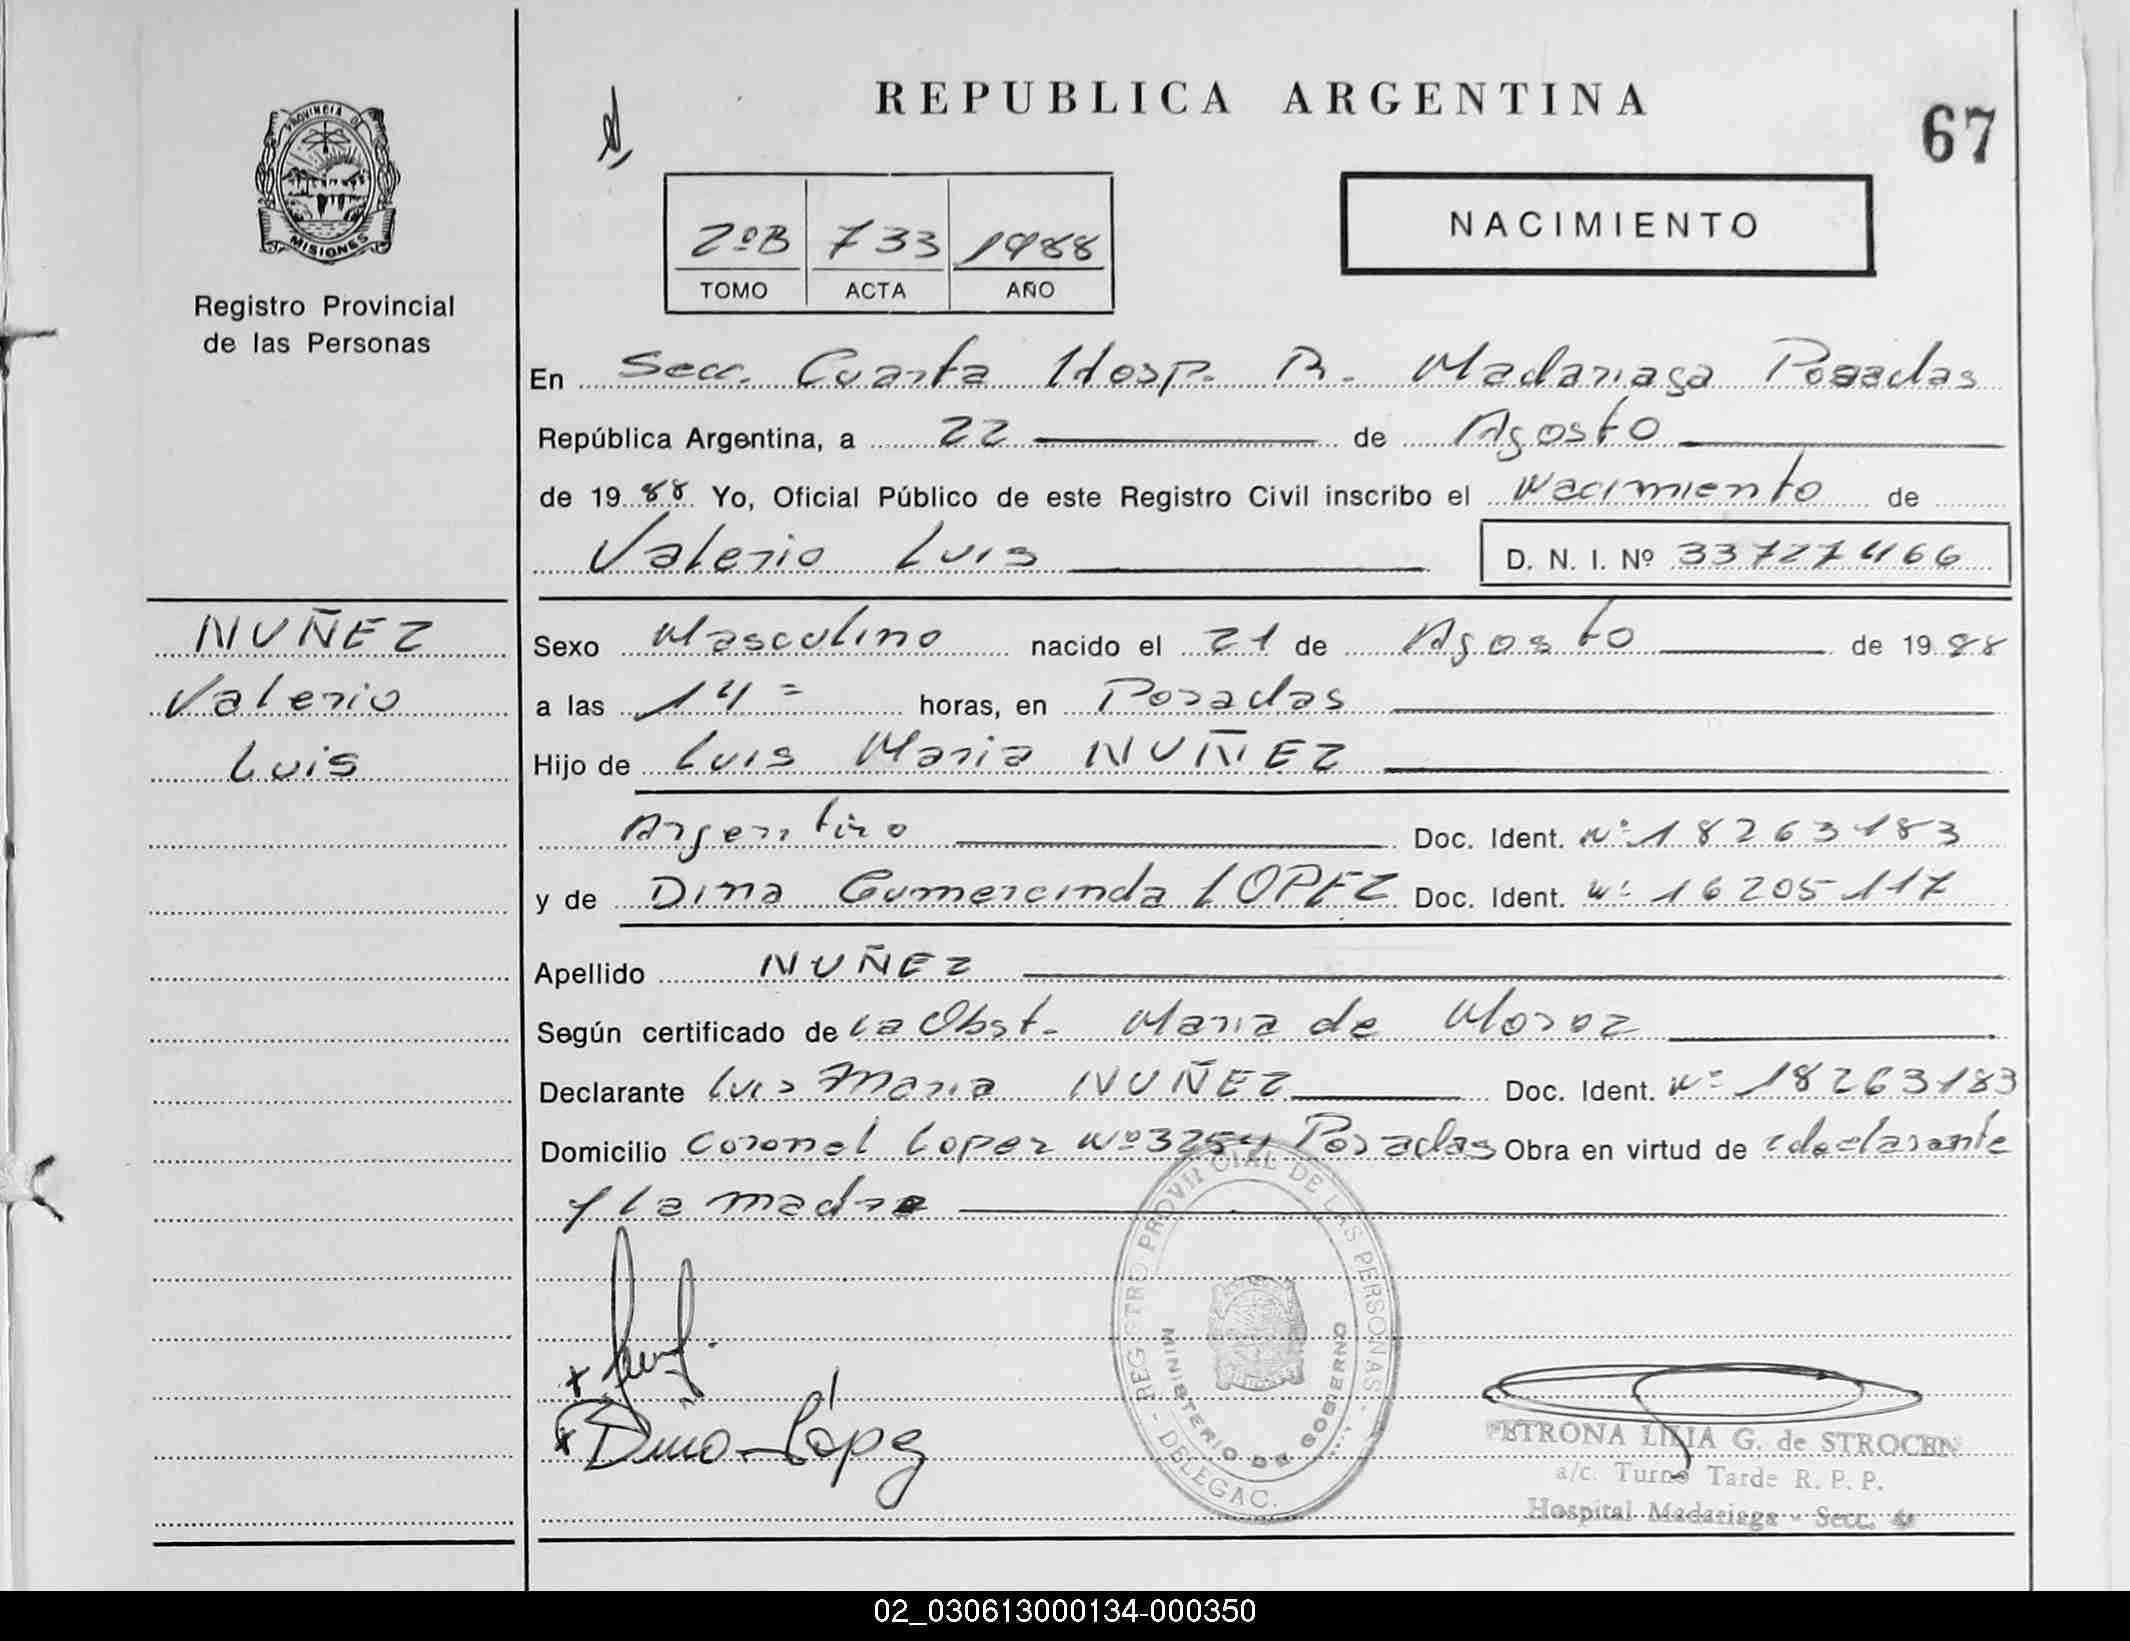 REPUBLICA ARGENTINA
67
PROVINCIA DE
MISIONES
Registro Provincial
de las Personas
2ºB 733 1988
TOMO ACTA AÑO
NACIMIENTO
En Secc. Cuarta Hosp. R. Madariaga Posadas
República Argentina, a 22 de Agosto
de 1988 Yo, Oficial Público de este Registro Civil inscribo el Nacimiento de
Valerio Luis
D. N. I. Nº 33727466
NUÑEZ
Valerio
Luis
Sexo Masculino nacido el 21 de Agosto de 1988
a las 14= horas, en Posadas
Hijo de Luis Maria NUÑEZ
Argentino Doc. Ident. Nº 18263183
y de Dina Gumercinda LOPEZ Doc. Ident. Nº 16205117
Apellido NUÑEZ
Según certificado de la Obst. Maria de Moroz
Declarante Luis Maria NUÑEZ Doc. Ident. Nº 18263183
Domicilio Coronel Lopez Nº 3254 Posadas Obra en virtud de declarante
y la madre
REGISTRO PROVINCIAL DE LAS PERSONAS
MINISTERIO DE GOBIERNO
DELEGAC.
x
x Dina López
PETRONA LILIA G. de STROCEN
a/c. Turno Tarde R. P. P.
Hospital Madariaga - Secc. 4a
02_030613000134-000350